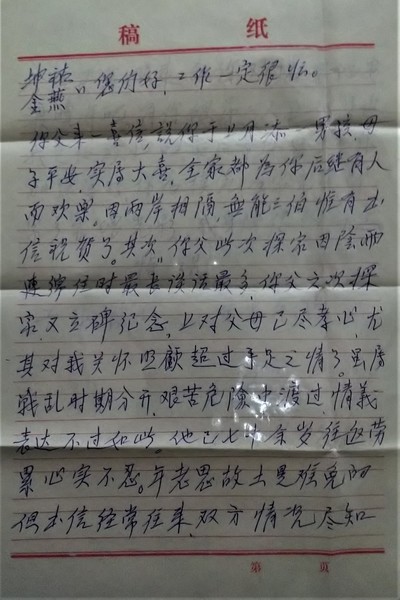 稿 纸
坤祯
金燕:您们好,工作一定很忙。
你父来一喜信,说你于11月添一男孩,母
子平安,实属大喜,全家都为你后继有人
而欢乐。因两岸相隔,无能三伯惟有去
信祝贺了。其次,你父此次探家因阴雨
连绵住时最长谈话最多,你父六次探
家又立碑纪念,上对父母已尽孝心,尤
其对我关怀照顾超过手足之情了。虽属
战乱时期分开,艰苦危险中渡过,情义
表达不过如此。他已七十余岁往返劳
累心实不忍。年老思故土是难免的
但去信经常往来,双方情况尽知
第 页